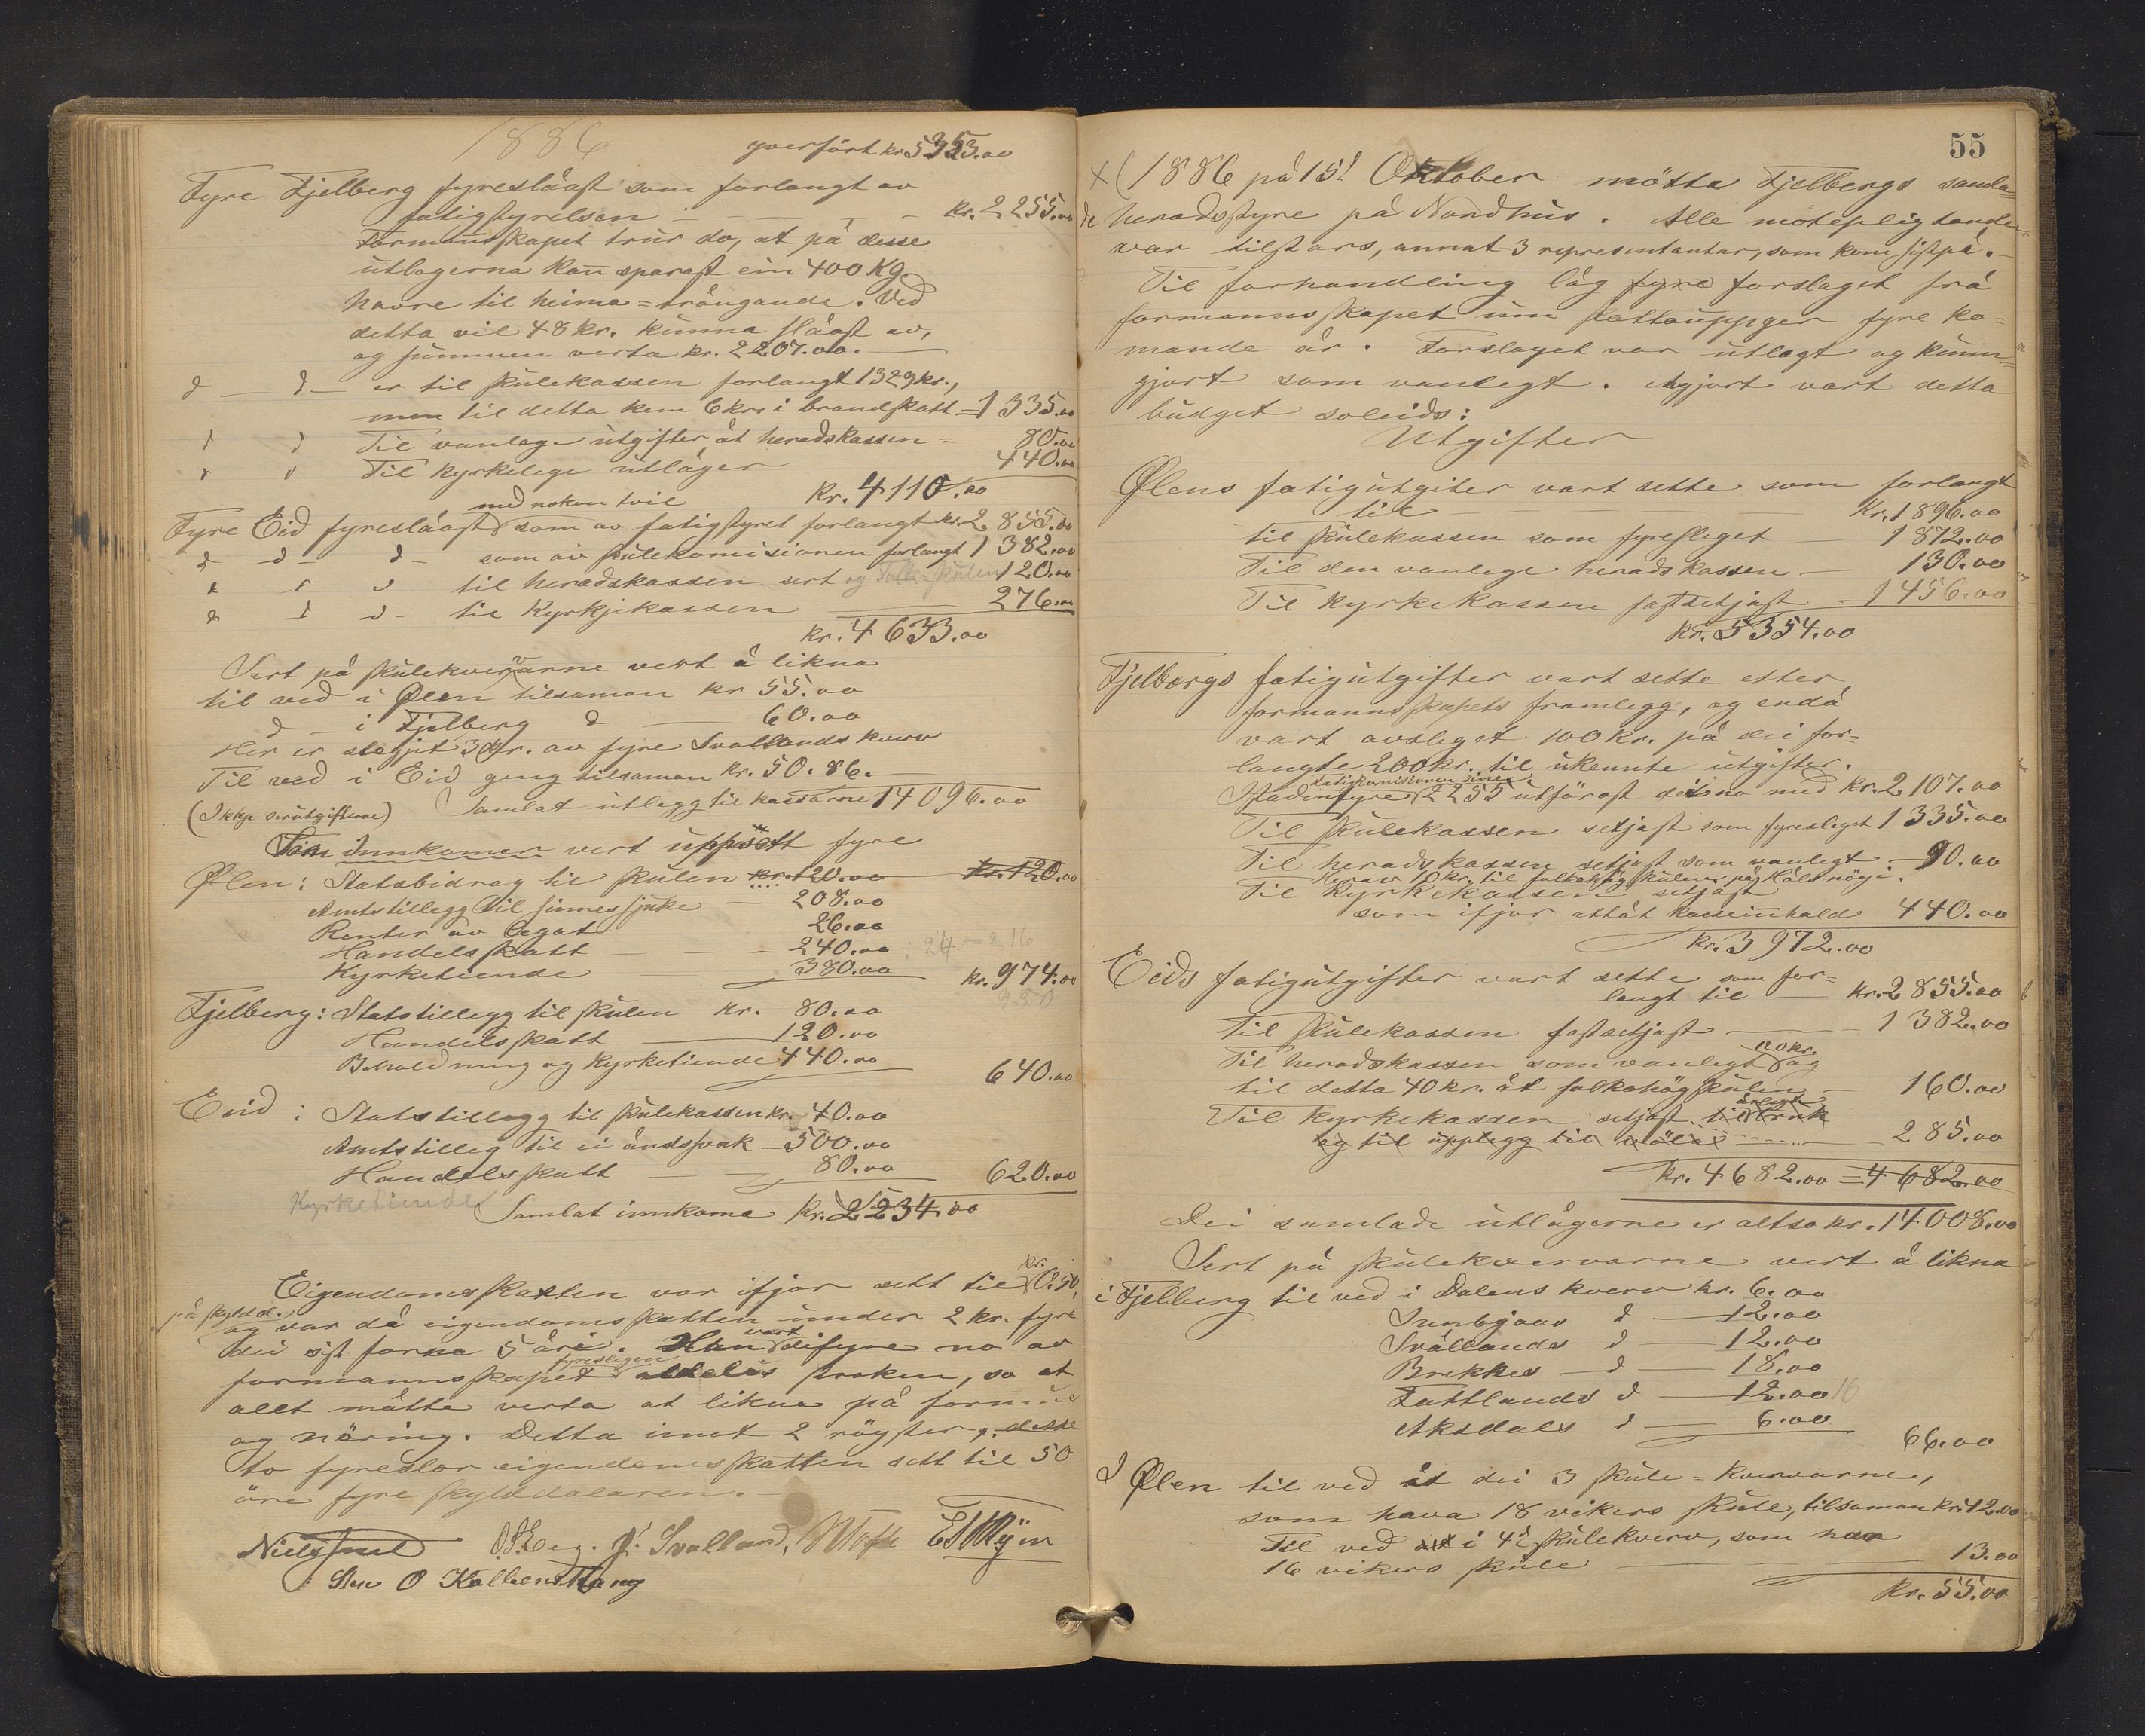 1886 yverfört kr 5353.00
Fyre Fjelberg fyreslåast som forlangt av
fatigstyrelsen kr. 2255.00
Formannskapet trur do, at på desse
utlogerna kann sparast ein 400 Kg.
havre til heime=trångande. Ved
detta vil 48 kr. kunna slåast av,
og summen verta kr. 2207.00.
d d er til skulekassen forlangt 1329 kr.,
men til detta kem 6 kr. i brandskatt = 1335.00
d d Til vanlege utgifter åt heradskassen = 80.00
d d Til kyrkelege utlåger 440.00
Kr. 4110.00
med nokon tvil
Fyre Eid fyreslåast som av fatigstyret forlangt kr. 2855.00
d d d som av skulekomisionen forlangt 1382.00
d d d til heradskassen sert og Folk-skulen 120.00
d d d til Kyrkjekassen 276.00
kr. 4633.00
Sert på skulekvervarne vert å likna
til ved i Ølen tilsaman kr 55.00
d i Fjelberg d 60.00
Her er slegjet 3 kr. av fyre Svollands kverv
Til ved i Eid geng tilsaman kr. 50.86.
(Ikkje serutgifterne) Samlat utlegg til kassarne 14096.00
Som Innkomer vert uppsett fyre
Ølen: Statsbidrag til skulen kr. 120.00 kr. 120.00
Amtstillegg til sinnessjuke 208.00
Renter av legat 26.00
Handelsskatt 240.00 : 24 - 216
Kyrketiende 380.00 kr. 974.00
950
Fjelberg: Statstillegg til skulen kr. 80.00
Handelsskatt 120.00
Behaldning og Kyrketiende 440.00 640.00
Eid : Statstillegg til skulekassen kr. 40.00
Amtstilleg til ei åndssvak 500.00
Handelsskatt 80.00 620.00
Kyrketiende Samlat innkoma Kr. 2234.00
Eigendomsskatten var ifjor sett til kr. 0.50,
på skyldd.
og var då eigendomsskatten under 2 kr. fyre
dei sist forne 5 åri. Han vart difyre no av
formannskapet fyreslegen aldeles stroken, so at
allt måtte verta at likna på formue
og näring. Detta imot 2 röyster, desse
to fyreslor eigendomsskatten sett til 50
öre fyre skylddalaren.
J. Svolland,
O
55
x (1886 på 15d Oktober mötte Fjelbergs samla=
de heradsstyre på Nordhus. Alle mötepligtande
var tilstars, annat 3 representantar, som kom sistpå.
Til forhandling låg fyre forslaget frå
formannsskapet um skattauppger fyre ko=
mande år. Forslaget var utlagt og kunn=
gjort som vanlegt. Avgjort vart detta
budget soleids:
Utgifter
Ølens fatigutgiter vart sette som forlangt
til Kr. 1896.00
til skulekassen som fyresleget 1872.00
Til den vanlege heradskassen 130.00
Til Kyrkekassen fastsetjast 1456.00
kr. 5354.00
Fjelbergs fatigutgifter vart sette etter
formannsskapets framlegg, og endå
vart avsleget 100 kr. på dei for=
langte 200 kr. til ukennte utgifter.
Fatigkomisionen sine
Istadenfyre 2255 utförast dei no med kr. 2107.00
Til skulekassen setjast som fyresleget 1335.00
Til heradskassen setjast som vanlegt 90.00
Herav 10 kr. til folkehögskulen på Hålandögi.
Til Kyrkekassen setjast
som ifjor attåt kasseinnhald 440.00
kr. 3972.00
Eids fatigutgifter vart sette som for=
langt til kr. 2855.00
Til skulekassen fastsetjast 1382.00
Til heradskassen som vanlegt 120 kr. og
til detta 40 kr. åt folkahögskulen 160.00
Til Kyrkekassen setjast til årlegt bruk
og til upplegg til 285.00
kr. 4682.00 = 4682.00
Dei samlade utlågerne er altso kr. 14008.00
Sert på skulekvervarne vert å likna
i Fjelberg til ved i Dalens kverv kr. 6.00
Sunbygaas d 12.00
Svållands d 12.00
Brekkes d 18.00
Tattlands d 12.00 16
Aksdals d 6.00
66.00
I Ølen til ved åt dei 3 skule=kvervarne,
som hava 18 vikers skule, tilsaman kr. 42.00
Til ved åt i 4d skulekverv, som har
16 vikers skule 13.00
Kr. 55.00